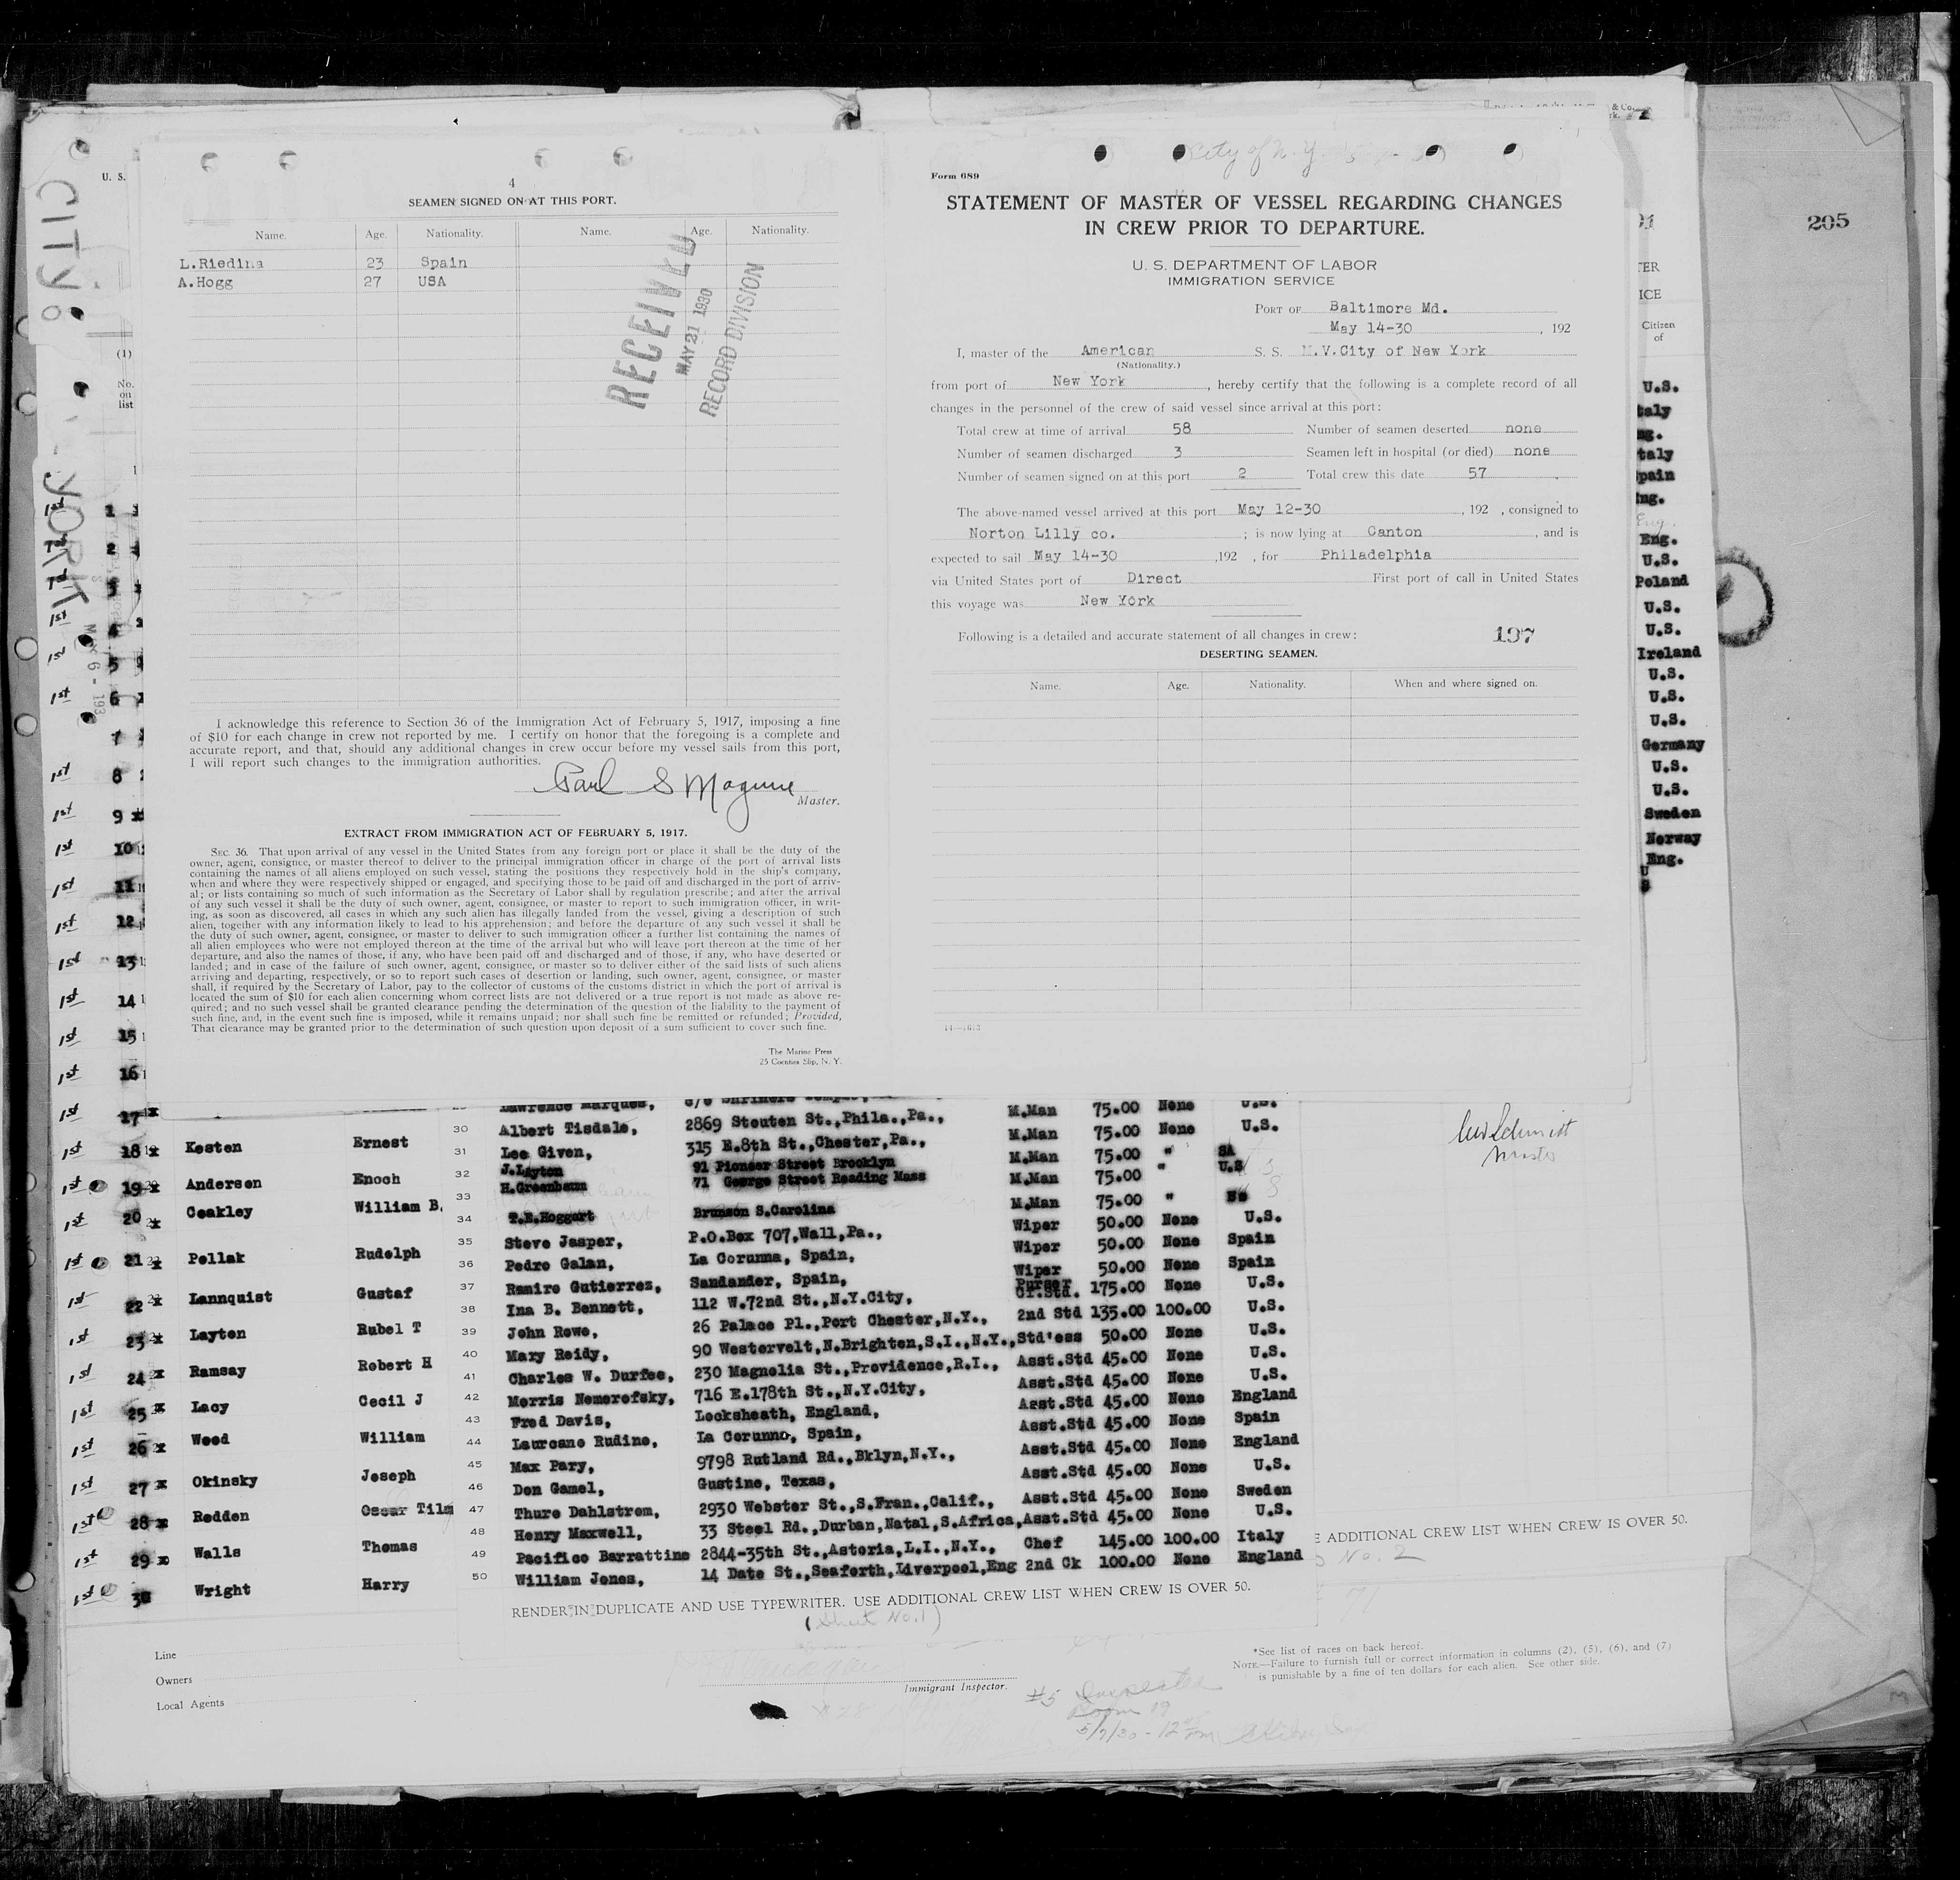 4
SEAMEN SIGNED ON AT THIS PORT.
Name. Age. Nationality. Name. Age. Nationality.
L.Riedina 23 Spain
A.Hogg 27 USA
RECEIVED
MAY 21 1930
RECORD DIVISION
I acknowledge this reference to Section 36 of the Immigration Act of February 5, 1917, imposing a fine
of $10 for each change in crew not reported by me. I certify on honor that the foregoing is a complete and
accurate report, and that, should any additional changes in crew occur before my vessel sails from this port,
I will report such changes to the immigration authorities.
Master.
EXTRACT FROM IMMIGRATION ACT OF FEBRUARY 5, 1917.
SEC. 36. That upon arrival of any vessel in the United States from any foreign port or place it shall be the duty of the
owner, agent, consignee, or master thereof to deliver to the principal immigration officer in charge of the port of arrival lists
containing the names of all aliens employed on such vessel, stating the positions they respectively hold in the ship's company,
when and where they were respectively shipped or engaged, and specifying those to be paid off and discharged in the port of arriv-
al; or lists containing so much of such information as the Secretary of Labor shall by regulation prescribe; and after the arrival
of any such vessel it shall be the duty of such owner, agent, consignee, or master to report to such immigration officer, in writ-
ing, as soon as discovered, all cases in which any such alien has illegally landed from the vessel, giving a description of such
alien, together with any information likely to lead to his apprehension; and before the departure of any such vessel it shall be
the duty of such owner, agent, consignee, or master to deliver to such immigration officer a further list containing the names of
all alien employees who were not employed thereon at the time of the arrival but who will leave port thereon at the time of her
departure, and also the names of those, if any, who have been paid off and discharged and of those, if any, who have deserted or
landed; and in case of the failure of such owner, agent, consignee, or master so to deliver either of the said lists of such aliens
arriving and departing, respectively, or so to report such cases of desertion or landing, such owner, agent, consignee, or master
shall, if required by the Secretary of Labor, pay to the collector of customs of the customs district in which the port of arrival is
located the sum of $10 for each alien concerning whom correct lists are not delivered or a true report is not made as above re-
quired; and no such vessel shall be granted clearance pending the determination of the question of the liability to the payment of
such fine, and, in the event such fine is imposed, while it remains unpaid; nor shall such fine be remitted or refunded; Provided,
That clearance may be granted prior to the determination of such question upon deposit of a sum sufficient to cover such fine.
The Marine Press
25 Coenties Slip, N. Y.
City of N. Y.
Form 689
STATEMENT OF MASTER OF VESSEL REGARDING CHANGES
IN CREW PRIOR TO DEPARTURE.
U. S. DEPARTMENT OF LABOR
IMMIGRATION SERVICE
PORT OF Baltimore Md.
May 14-30 , 192
I, master of the American S. S. M.V.City of New York
(Nationality.)
from port of New York , hereby certify that the following is a complete record of all
changes in the personnel of the crew of said vessel since arrival at this port:
Total crew at time of arrival 58 Number of seamen deserted none
Number of seamen discharged 3 Seamen left in hospital (or died) none
Number of seamen signed on at this port 2 Total crew this date 57
The above-named vessel arrived at this port May 12-30 , 192 , consigned to
Norton Lilly co. ; is now lying at Canton , and is
expected to sail May 14-30 ,192 , for Philadelphia
via United States port of Direct First port of call in United States
this voyage was New York
Following is a detailed and accurate statement of all changes in crew: 197
DESERTING SEAMEN.
Name. Age. Nationality. When and where signed on.
205
Citizen
of
U.S.
Eng.
U.S.
Poland
U.S.
U.S.
Ireland
U.S.
U.S.
U.S.
Germany
U.S.
U.S.
Sweden
Norway
Eng.
U. S.
(1)
No.
on
list
CITY of
YORK
1st 8
1st 9
1st 10
1st 11
1st 12
1st 13
1st 14
1st 15
1st 16
1st 17
1st 18 x Kesten Ernest
1st 19 x Andersen Enoch
1st 20 x Coakley William B.
1st 21 x Pollak Rudolph
1st 22 x Lannquist Gustaf
1st 23 x Layton Rubel T
1st 24 x Ramsay Robert H
1st 25 x Lacy Cecil J
1st 26 x Weed William
1st 27 x Okinsky Joseph
1st 28 x Redden Oscar Tilm
1st 29 x Walls Thomas
1st 30 Wright Harry
Lawrence Marques, M.Man 75.00 None U.S.
30 Albert Tisdale, 2869 Stouten St.,Phila.,Pa., M.Man 75.00 None U.S.
31 Lee Given, 315 E.8th St.,Chester,Pa., M.Man 75.00 "
32 J.Layton 91 Pioneer Street Brooklyn M.Man 75.00 " U.S
33 H.Greenbaum 71 George Street Reading Mass M.Man 75.00 "
34 T.E.Hoggart Brunson S.Carolina Wiper 50.00 None U.S.
35 Steve Jasper, P.O.Box 707,Wall,Pa., Wiper 50.00 None Spain
36 Pedro Galan, La Corunna, Spain, Wiper 50.00 None Spain
37 Ramiro Gutierrez, Sandander, Spain, Purser Cr.Std. 175.00 None U.S.
38 Ina B. Bennett, 112 W.72nd St.,N.Y.City, 2nd Std 135.00 100.00 U.S.
39 John Rowe, 26 Palace Pl.,Port Chester,N.Y., Std'ess 50.00 None U.S.
40 Mary Reidy, 90 Westervelt,N.Brighten,S.I.,N.Y., Asst.Std 45.00 None U.S.
41 Charles W. Durfee, 230 Magnolia St.,Providence,R.I., Asst.Std 45.00 None U.S.
42 Morris Nemerofsky, 716 E.178th St.,N.Y.City, Asst.Std 45.00 None England
43 Fred Davis, Locksheath, England, Asst.Std 45.00 None Spain
44 Laureano Rudino, La Corunno, Spain, Asst.Std 45.00 None England
45 Max Pary, 9798 Rutland Rd.,Bklyn,N.Y., Asst.Std 45.00 None U.S.
46 Don Gamel, Gustine, Texas, Asst.Std 45.00 None Sweden
47 Thure Dahlstrom, 2930 Webster St.,S.Fran.,Calif., Asst.Std 45.00 None U.S.
48 Henry Maxwell, 33 Steel Rd.,Durban,Natal,S.Africa, Chef 145.00 100.00 Italy
49 Pacifico Barrattino 2844-35th St.,Astoria,L.I.,N.Y., 2nd Ck 100.00 None England
50 William Jones, 14 Date St.,Seaforth,Liverpool,Eng
RENDER IN DUPLICATE AND USE TYPEWRITER. USE ADDITIONAL CREW LIST WHEN CREW IS OVER 50.
(Sheet No.1)
ADDITIONAL CREW LIST WHEN CREW IS OVER 50.
No. 2
Line
Owners
Local Agents
Immigrant Inspector.
*See list of races on back hereof.
NOTE.—Failure to furnish full or correct information in columns (2), (5), (6), and (7)
is punishable by a fine of ten dollars for each alien. See other side.
#5
Room 19
5/7/30 - 12